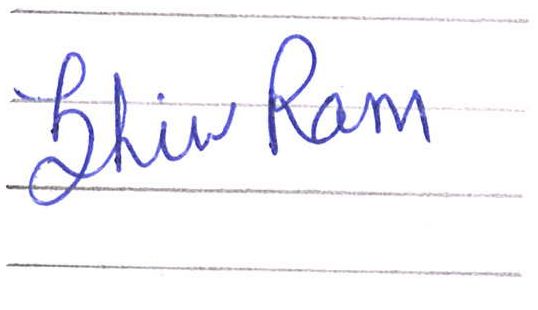 Shiv Ram